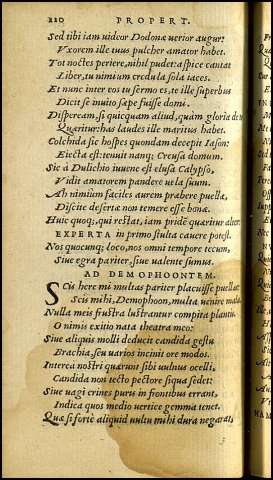 220 PROPERT.
Sed tibi iam uideor Dodona uertor augur:
Vxorem ille tuus pulcher amator habet.
Tot noctes periere, nihil pudet: aspice cantat
Liber, tu nimium credula sola iaces.
Et nunc inter uos tu sermo es, te ille superbus
Dicit se inuito sæpe fuisse domi.
Disperéam, si quicquam aliud, quàm gloria de te
Quæritur: has laudes ille maritus habet.
Colchida sic hospes quondam decepit Iason:
Eiecta est: tenuit nanq; Creusa domum.
Sic à Dulichio iuuene est elusa Calypso,
Vidit amatorem pandere uela suum.
Ah nimiùm faciles aurem præbere puellæ,
Discite desertæ non temere esse bonæ.
Huic quoq;, qui restat, iam pridē quæritur alter:
EXPERTA in primo stulta cauere potest.
Nos quocunq; loco, nos omni tempore tecum,
Siue ægra pariter, siue ualente sumus.
AD DEMOPHOONTEM.
SCis here mi multas pariter placuisse puellas
Scis mihi, Demophoon, multa uenire mala.
Nulla meis frustra lustrantur compita plantis,
O nimis exitio nata theatra meo:
Siue aliquis molli deducit candida gestu
Brachia, seu uarios incinit ore modos.
Interea nostri quærunt sibi uulnus ocelli,
Candida non tecto pectore siqua sedet:
Siue uagi crines puris in frontibus errant,
Indica quos medio uertice gemma tenet.
Quæ si fortè aliquid uultu mihi dura negarat,